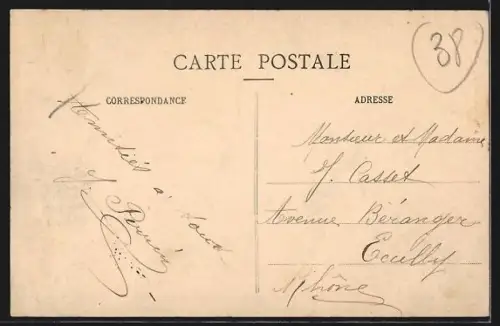 CARTE POSTALE
38
CORRESPONDANCE
ADRESSE
Amitiés à tous
Monsieur et Madame
J. Casset
Avenue Béranger
Ecully
Rhône